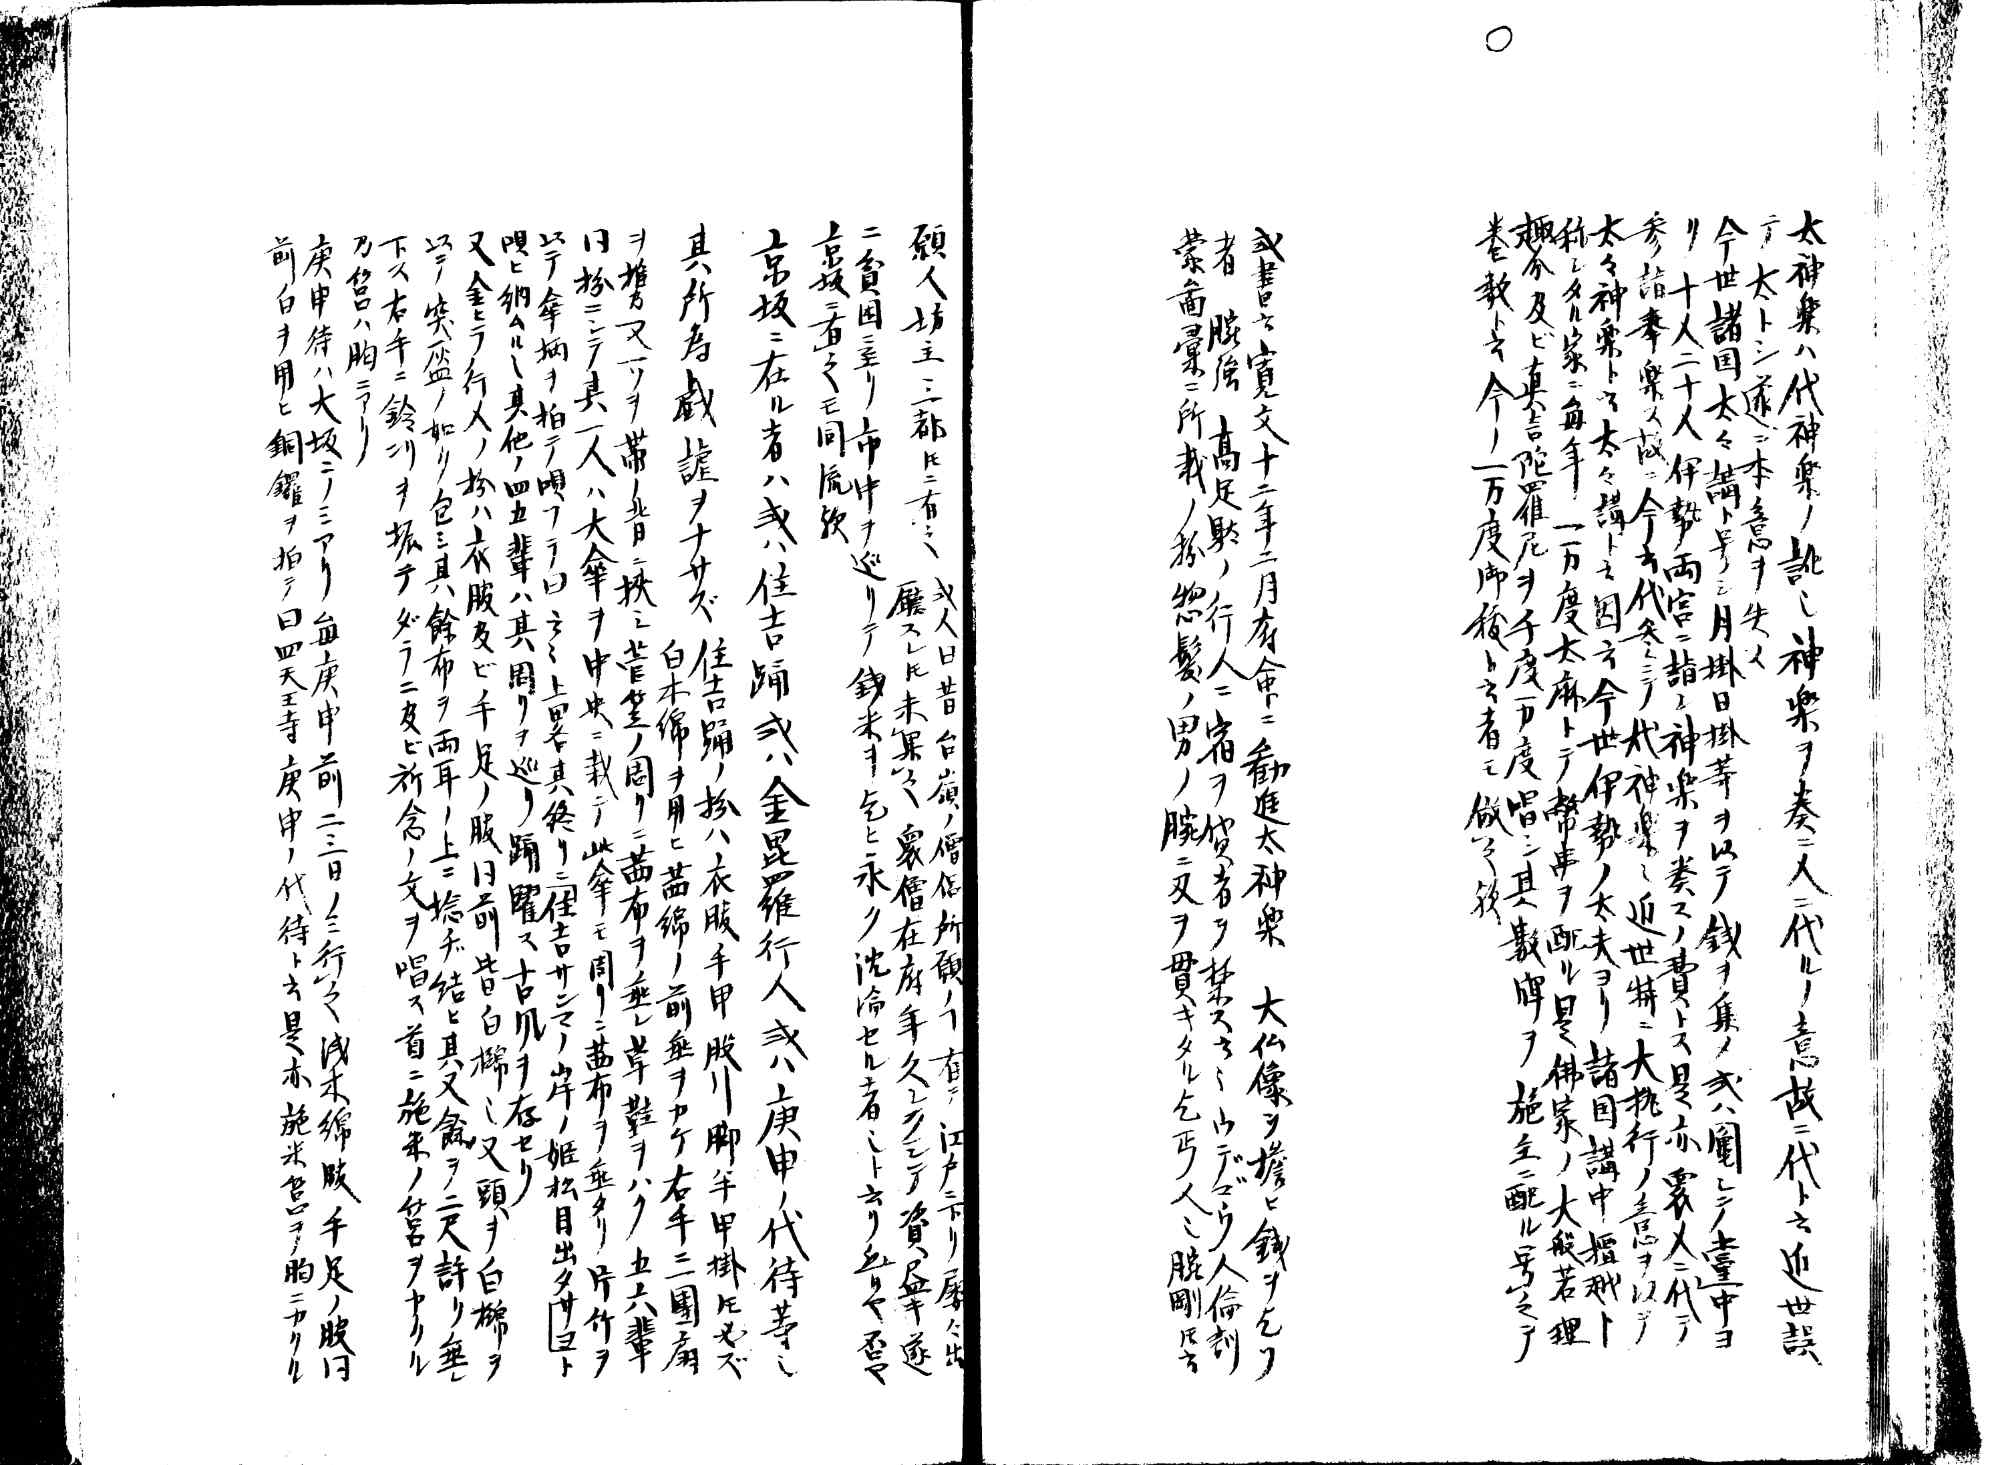 太神楽ハ代神楽ノ訛也神楽ヲ奏ニ人ニ代ルノ意故ニ代ト云近世誤
テ太トシ遂ニ本意ヲ失ス
今世諸国太々講ト号シ月掛日掛等ヲ以テ銭ヲ集メ或ハ圖シテ臺中ヨ
リ十人二十人伊勢両宮ニ詣シ神楽ヲ奏スノ費トス是亦衆人ニ代テ
参詣奉楽ス故ニ今云代参ニテ代神楽也近世特ニ大挑行ノ意ヲ以テ
太々神楽ト云太々講ト云因云今世伊勢ノ太夫ヨリ諸国講中檀越ト
称シタル家ニ毎年一万度太麻トテ幣串ヲ配ル是佛家ノ大般若理
趣分及ビ真言陀羅尼ヲ千度一万度唱シ其数牌ヲ施主ニ配ル号之テ
巻数ト云今ノ一万度御祓ト云者モ倣之歟
或書云寛文十二年二月府命ニ勧進太神楽 大仏像ヲ擔ヒ銭ヲ乞フ
者 腕強 高足駄ノ行人ニ宿ヲ貸者ヲ禁ス云々ウデゴウ人倫訓
蒙圖彙ニ所載ノ扮惣髪ノ男ノ腕ニ刃ヲ貫キタル乞丐人也腕剛トモ云
願人坊主 三都トモニ有之 或人曰昔台嶺ノ僧侶所願ノヿ有テ江戸ニ下リ屡々出
廳スレトモ未果之衆僧在府年久シクシテ資尽キ遂
ニ貧困ニ至リ市中ヲ巡リテ銭米ヲ乞ヒ永ク沈淪セル者也ト云リ然リヤ否ヤ
京坂ニ有之モ同流歟
京坂ニ在ル者ハ或ハ住吉踊或ハ金毘羅行人或ハ庚申ノ代待等也
其所為戯謔ヲナサズ 住吉踊ノ扮ハ衣服手甲股引脚半甲掛トモ必ズ
白木綿ヲ用ヒ茜綿ノ前垂ヲカケ右手ニ團扇
ヲ携ヘ又一ツヲ帯ノ背ニ挾ミ菅笠ノ周リニ茜布ヲ垂レ草鞋ヲハク五六輩
同扮ニシテ其一人ハ大傘ヲ中央ニ栽テ此傘モ周リニ茜布ヲ垂タリ片竹ヲ
以テ傘柄ヲ拍テ唄フテ曰云々上畧其終リニ住吉サンマノ岸ノ姫松目出タサヨト
唄ヒ納ムル也其他ノ四五輩ハ其周リヲ巡リ踊躍ス古風ヲ存セリ
又金ヒラ行人ノ扮ハ衣服及ビ手足ノ服同前皆白㮈也又頭ヲ白㮈ヲ
以テ突盔ノ如ク包ミ其餘布ヲ両耳ノ上ニ捻ヂ結ヒ其又餘ヲ二尺許リ垂レ
下ス右手ニ鈴ヲ振テダラニ及ビ祈念ノ文ヲ唱ス首ニ施米ノ筥ヲカクル
乃筥ハ胸ニアリ
庚申待ハ大坂ニノミアリ毎庚申前二三日ノミ行之浅木綿服手足ノ服同
前白ヲ用ヒ銅鑼ヲ拍テ曰四天王寺庚申ノ代待ト云是亦施米筥ヲ胸ニカクル